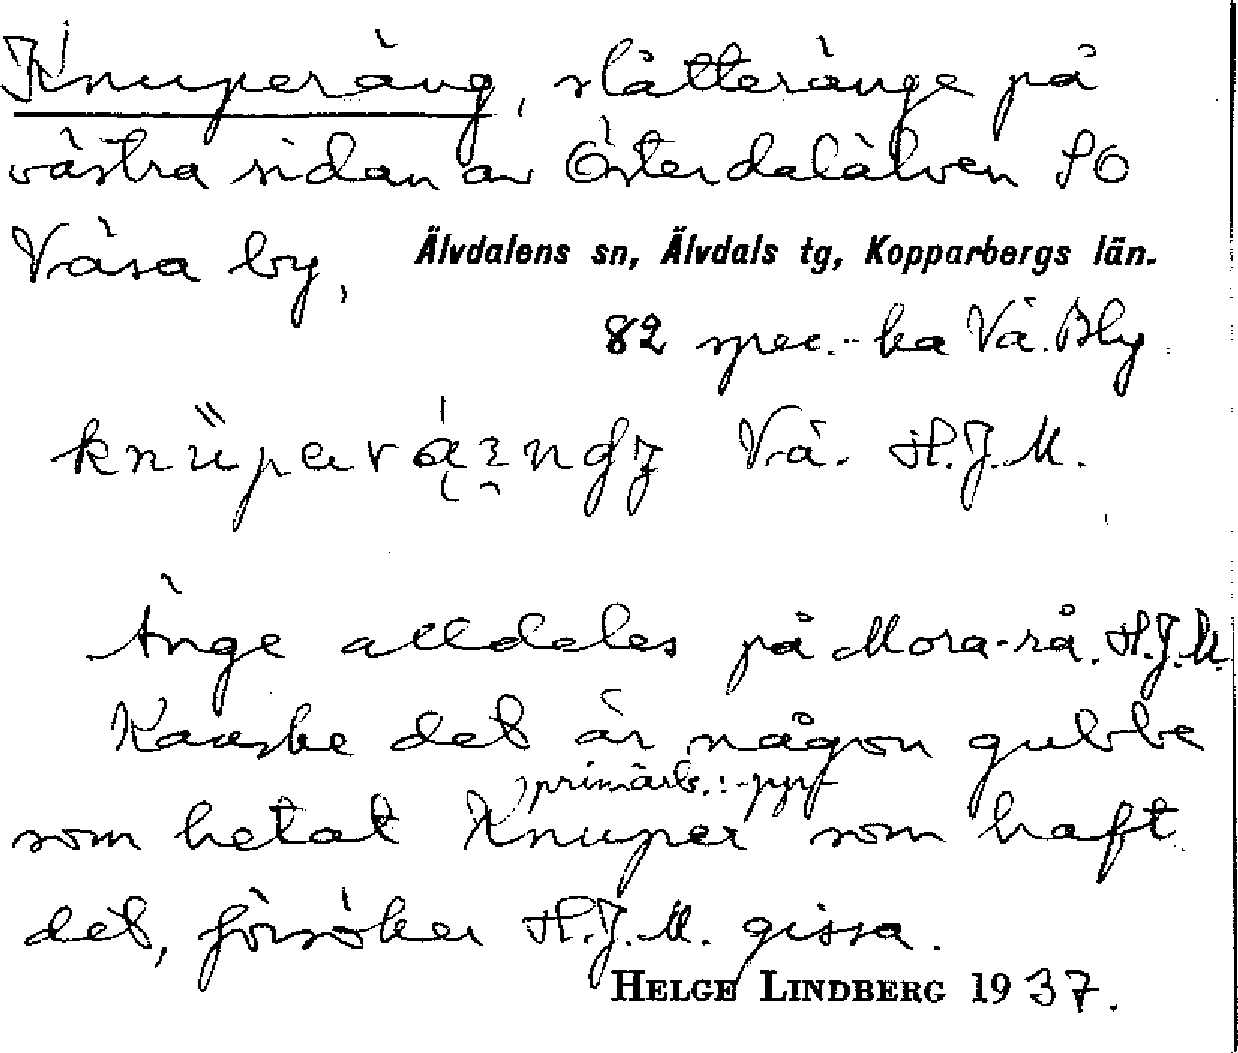 Knuperäng, slåtteränge på
västra sidan av Österdalälven SO
Våsa by, Älvdalens sn, Älvdals tg, Kopparbergs län.
82 spec.-ka Vå. Bly.
Vå. H.J.M.
Änge alldeles på Mora-rå. H.J.M.
Kanske det är någon gubbe
primärb.: -pp-
som hetat Knuper som haft
det, försöker H.J.M. gissa.
HELGE LINDBERG 1937.